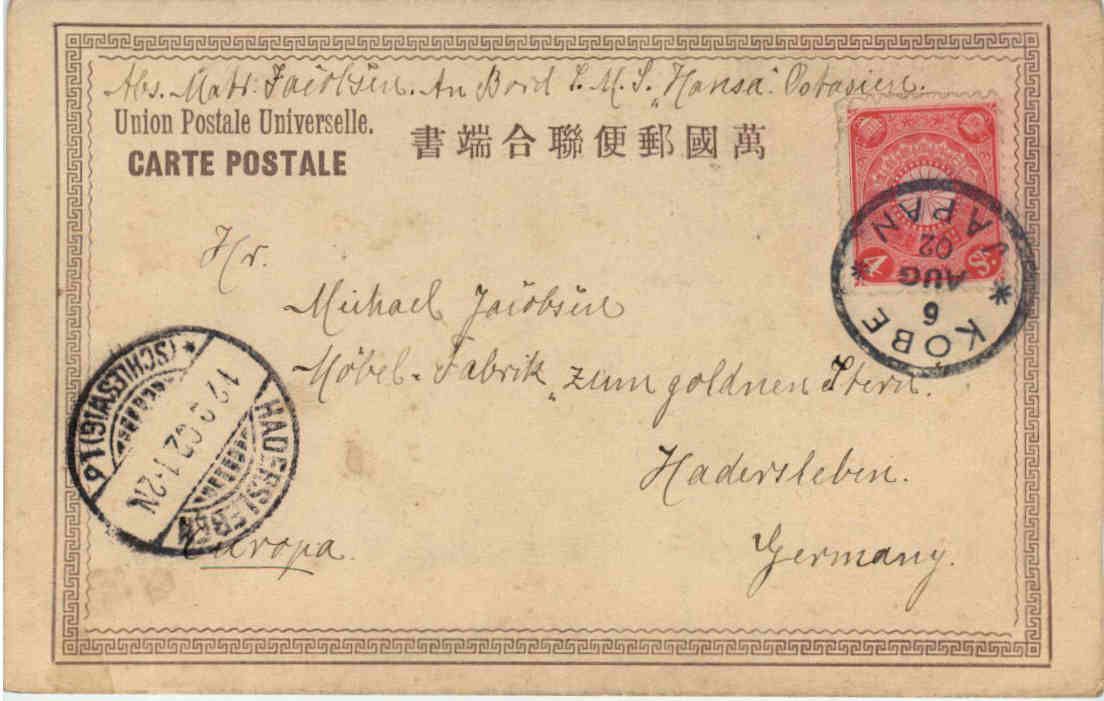 Abs. Matr. Jacobsen. An Bord S. M. S. „Hansa“. Ostasien.
Union Postale Universelle.
CARTE POSTALE
書端合聯便郵國萬
4 S.
KOBE
6
AUG
02
JAPAN
Hr.
Michael Jacobsen
Möbel-Fabrik „zum goldnen Stern.
Hadersleben.
Germany.
Europa.
HADERSLEBEN
* (SCHLESWIG) 1 b
02. 1-2N